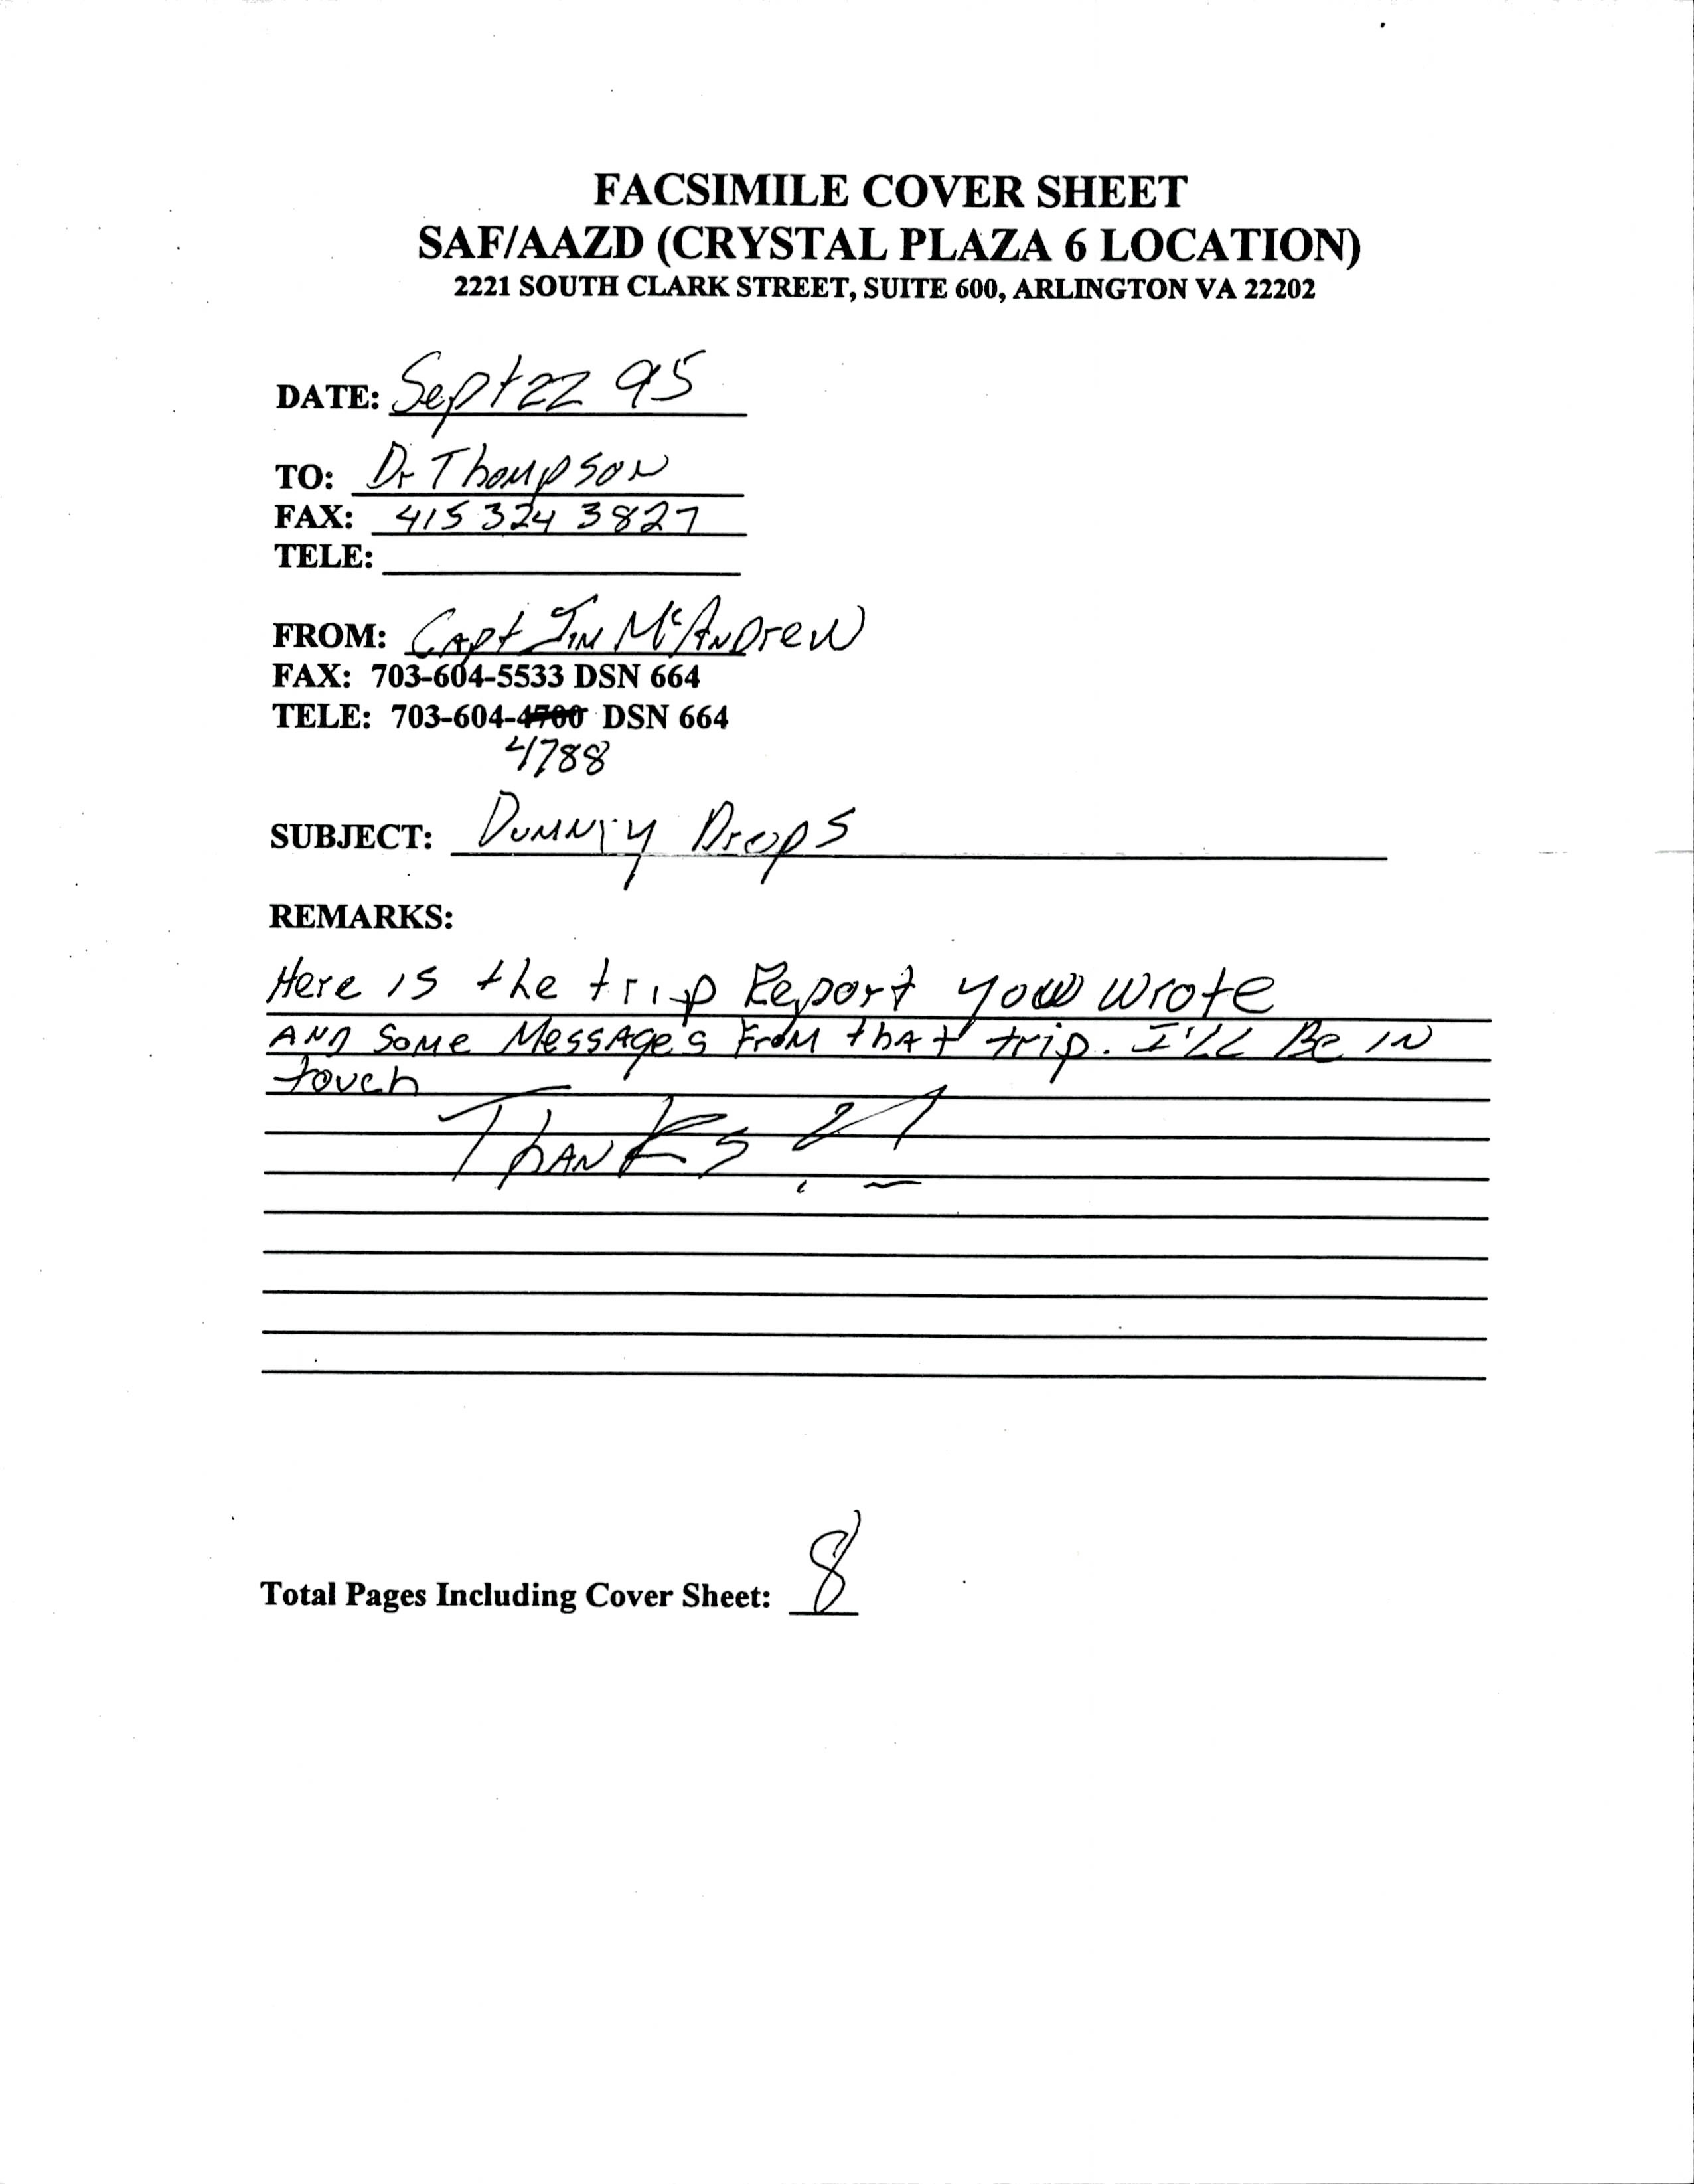 FACSIMILE COVER SHEET
SAF/AAZD (CRYSTAL PLAZA 6 LOCATION)
2221 SOUTH CLARK STREET, SUITE 600, ARLINGTON VA 22202
DATE: Sept 22 95
TO: Dr Thompson
FAX: 415 324 3827
TELE:
FROM: Capt Jim McAndrew
FAX: 703-604-5533 DSN 664
TELE: 703-604-4700 DSN 664
4788
SUBJECT: Dummy Drops
REMARKS:
Here is the trip Report you wrote
AND Some Message's From that trip. I'll Be IN
touch
THANKS !!
Total Pages Including Cover Sheet: 8